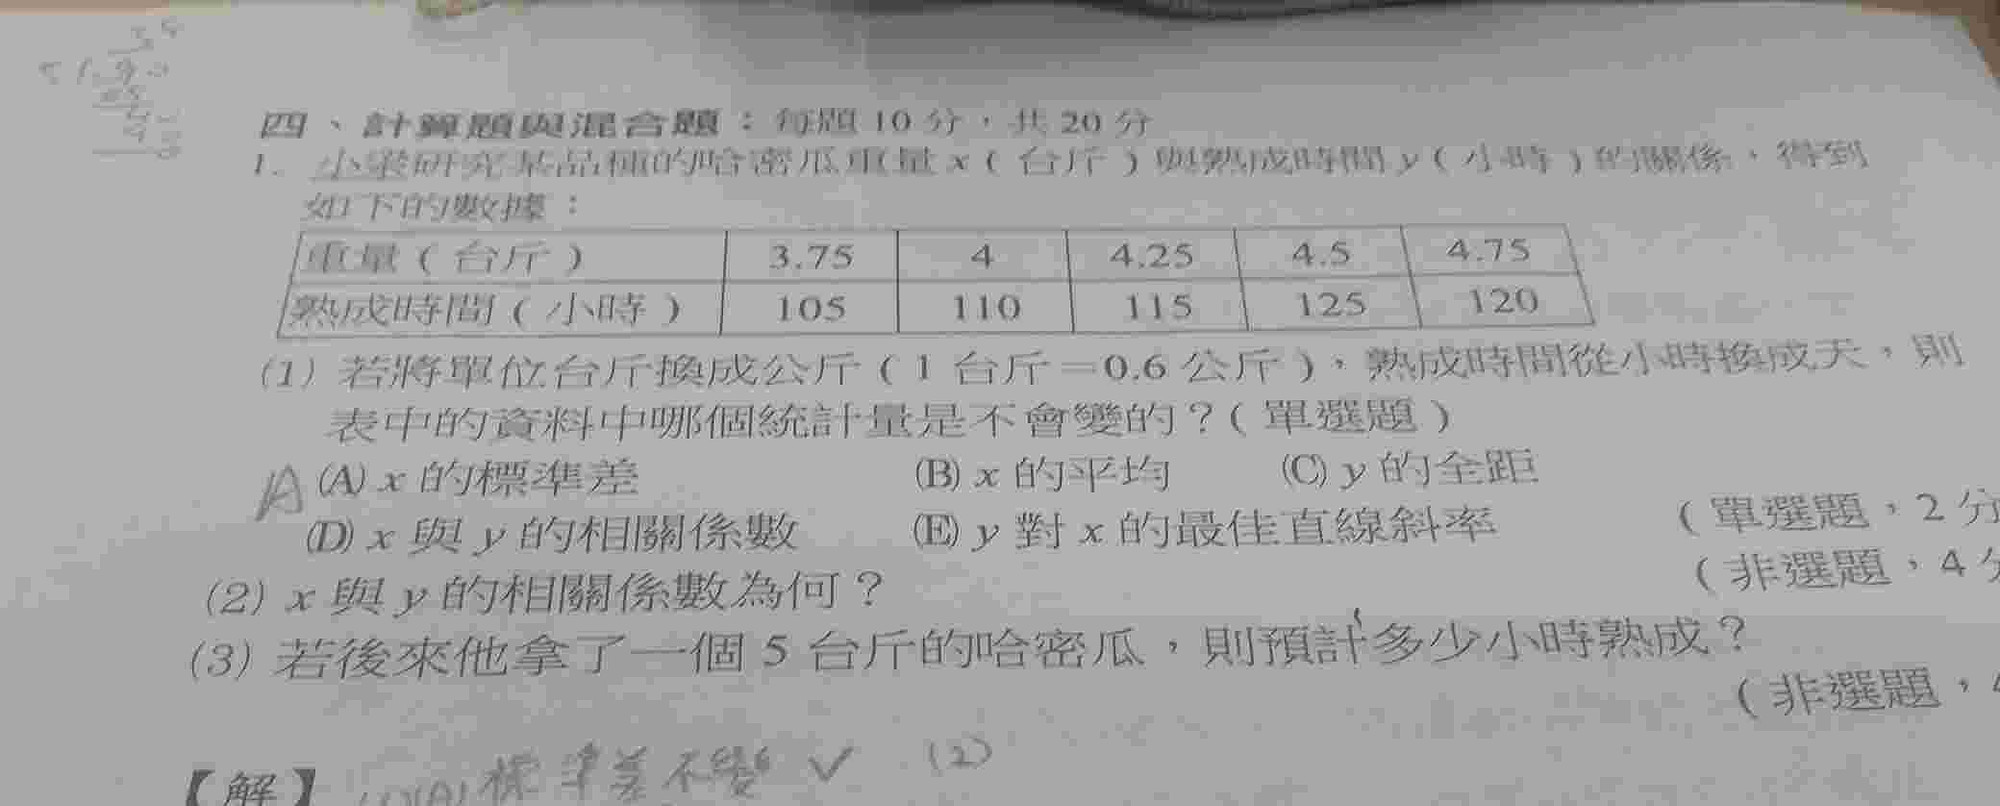 四、計算題與混合題：每題 10 分，共 20 分
1. 小梁研究某品種的哈密瓜重量 x（台斤）與熟成時間 y（小時）的關係，得到
如下的數據：
重量（台斤） 3.75 4 4.25 4.5 4.75
熟成時間（小時） 105 110 115 125 120
(1) 若將單位台斤換成公斤（1 台斤＝0.6 公斤），熟成時間從小時換成天，則
表中的資料中哪個統計量是不會變的？（單選題）
A (A) x 的標準差 (B) x 的平均 (C) y 的全距
(D) x 與 y 的相關係數 (E) y 對 x 的最佳直線斜率 （單選題，2 分
(2) x 與 y 的相關係數為何？ （非選題，4 分
(3) 若後來他拿了一個 5 台斤的哈密瓜，則預計多少小時熟成？
（非選題，4
【解】 (1)(A) 標準差不變 ✓ (2)